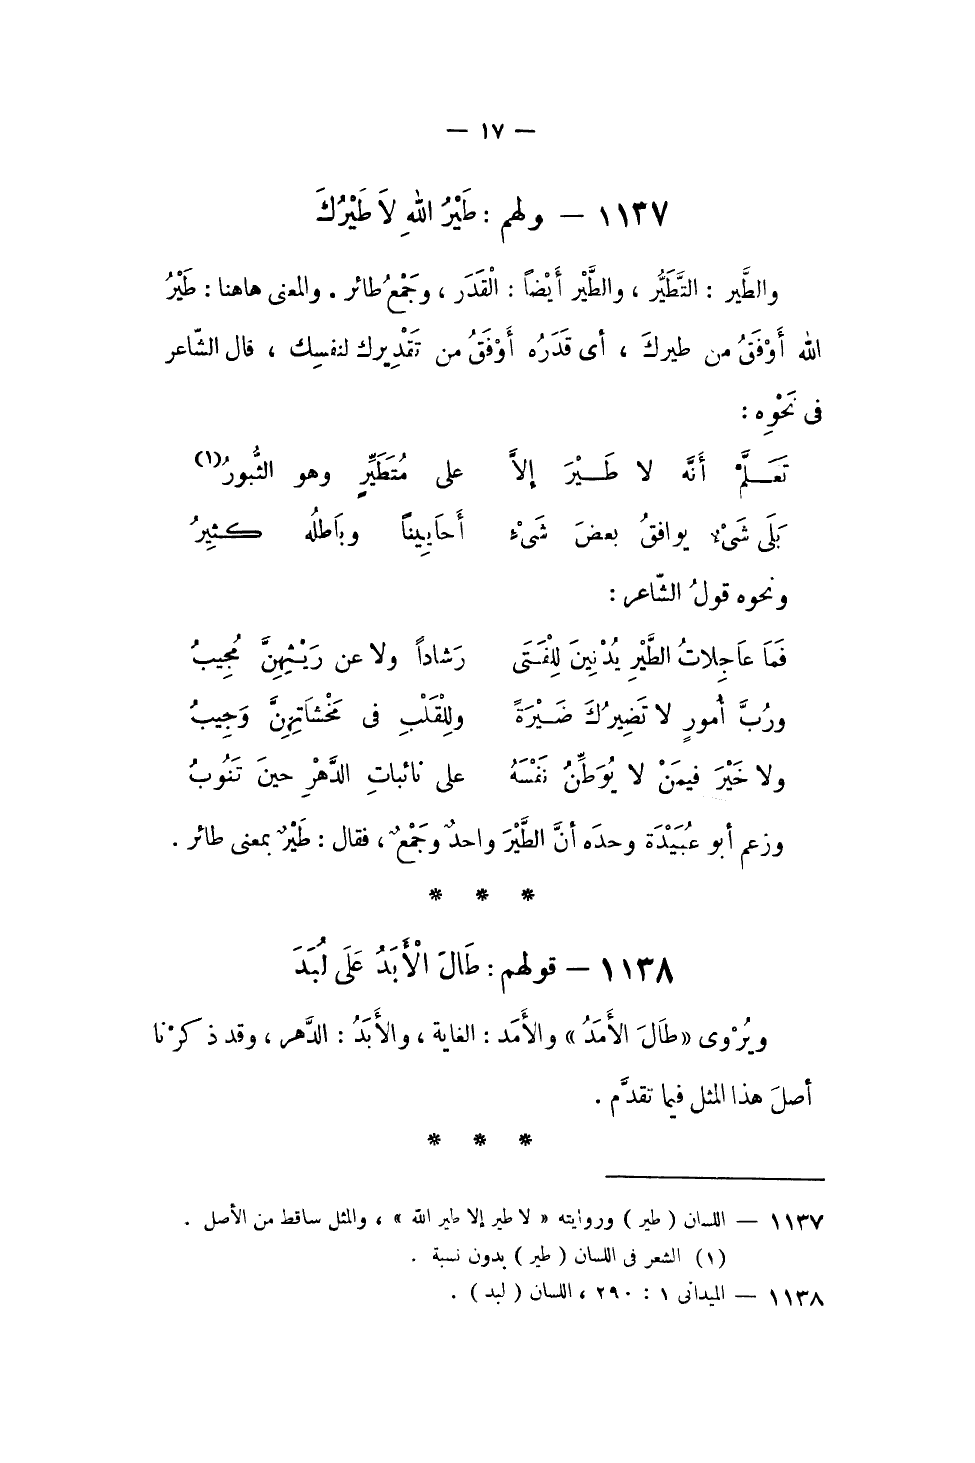 — ١٧ —
١١٣٧ — ولهم : طَيْرُ اللهِ لاَ طَيْرُكَ
والطَّير : التَّطَيُّر ، والطَّيْر أَيْضاً : الْقَدَر ، وجَمْعُ طائر . والمعنى هاهنا : طَيْرُ
الله أَوْفَقُ من طيرِكَ ، أى قَدَرُه أَوْفَقُ من تَقْدِيرِك لنفسِك ، قال الشّاعر
فى نَحْوِه :
تَعَـلَّمْ أَنَّه لا طَـيْرَ إلاَّ على مُتَطَيِّرٍ وهو الثُّبورُ(١)
بَلَى شَىْءٌ يوافقُ بعضَ شَىْءٍ أَحَايِيناً وبَاطلُه كـثِيرُ
ونحوه قولُ الشّاعر :
فَمَا عَاجِلاتُ الطَّيْرِ يُدْنِينَ لِلْفَـتَى رَشاداً ولا عن رَيْثِهِنَّ مُجِيبُ
ورُبَّ أُمورٍ لا تَضِيرُكَ ضَـيْرَةً ولِلْقَلْبِ فى مَخْشَاتِهِنَّ وَجِيبُ
ولا خَيْرَ فيمَنْ لا يُوَطِّنُ نَفْسَهُ على نائباتِ الدَّهْرِ حينَ تَنُوبُ
وزعم أبو عُبَيْدَة وحدَه أنَّ الطَّيْرَ واحدٌ وجَمْعٌ ، فقال : طَيْرٌ بمعنى طائر .
* * *
١١٣٨ — قولهم : طَالَ الْأَبَدُ عَلَى لُبَدَ
ويُرْوى «طَالَ الأَمَدُ» والأَمَد : الغاية ، والأَبَدُ : الدَّهر ، وقد ذكرْنا
أصلَ هذا المثل فيما تقدَّم .
* * *
١١٣٧ — اللسان ( طير ) وروايته « لا طير إلا طير الله » ، والمثل ساقط من الأصل .
(١) الشعر فى اللسان ( طير ) بدون نسبة .
١١٣٨ — الميدانى ١ : ٢٩٠ ، اللسان ( لبد ) .